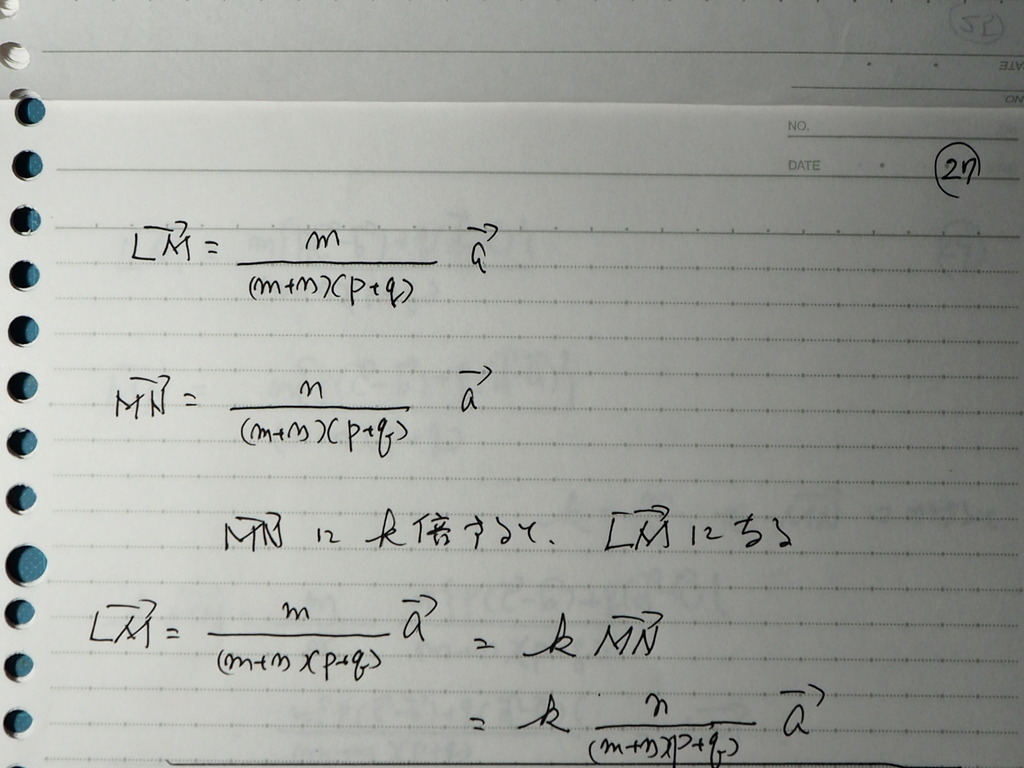 NO.
DATE
27
$\overrightarrow{LM} = \frac{m}{(m+n)(p+q)} \vec{a}$
$\overrightarrow{MN} = \frac{n}{(m+n)(p+q)} \vec{a}$
$\overrightarrow{MN}$ に k 倍すると、 $\overrightarrow{LM}$ になる
$\overrightarrow{LM} = \frac{m}{(m+n)(p+q)} \vec{a} = k \overrightarrow{MN}$
$= k \frac{n}{(m+n)(p+q)} \vec{a}$